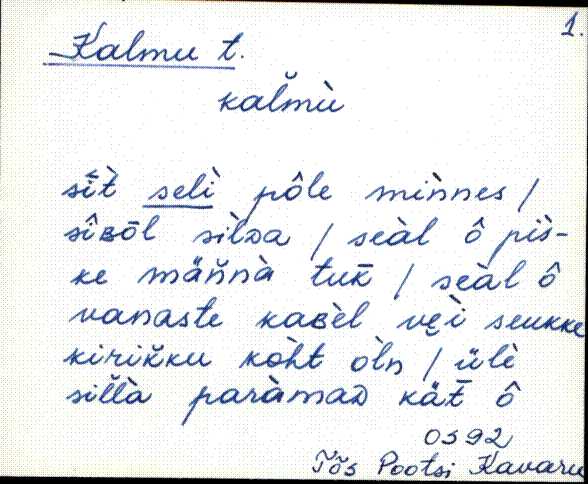 1.
Kalmu t.
kal̆mù
sīt̀ selì pôle miǹnes /
sîʙōl sìlᴅa / seàl ô piš-
ke män̆nà tuk̄ / seàl ô
vanaste kaʙèl vèi seukke
kirik̆ku kòht òln / ülè
sil̆là paràmaᴅ kät̄ ô
0592
Tõs Pootsi Kavaru